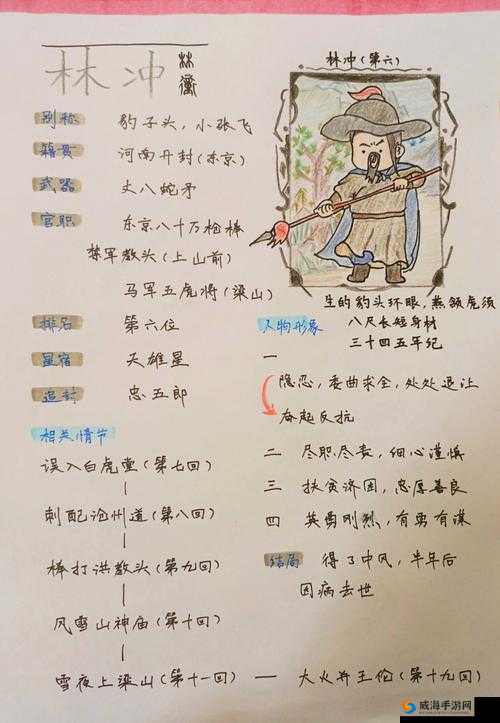 林冲 林衝
别称 豹子头，小张飞
籍贯 河南开封(东京)
武器 丈八蛇矛
官职 东京八十万枪棒
禁军教头(上山前)
马军五虎将(梁山)
排名 第六位
星宿 天雄星
追封 忠武郎
相关情节
误入白虎堂(第七回)
刺配沧州道(第八回)
棒打洪教头(第九回)
风雪山神庙(第十回)
雪夜上梁山(第十一回) — 大火并王伦(第十九回)
林冲(第六)
生的豹头环眼，燕颔虎须
八尺长短身材
三十四五年纪
人物形象
一
隐忍，委曲求全，处处退让
奋起反抗
二 尽职尽责，细心谨慎
三 扶贫济困，忠厚善良
四 英勇刚烈，有勇有谋
结局 得了中风，半年后
因病去世
威海手游网